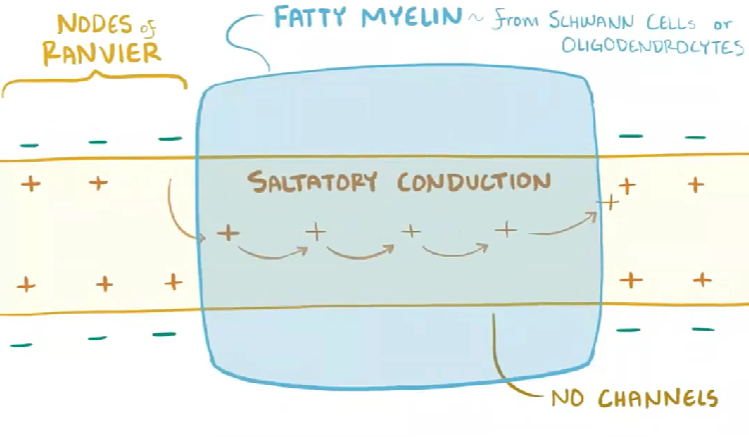 NODES of
RANVIER
FATTY MYELIN ~ from SCHWANN CELLS or
OLIGODENDROCYTES
SALTATORY CONDUCTION
NO CHANNELS